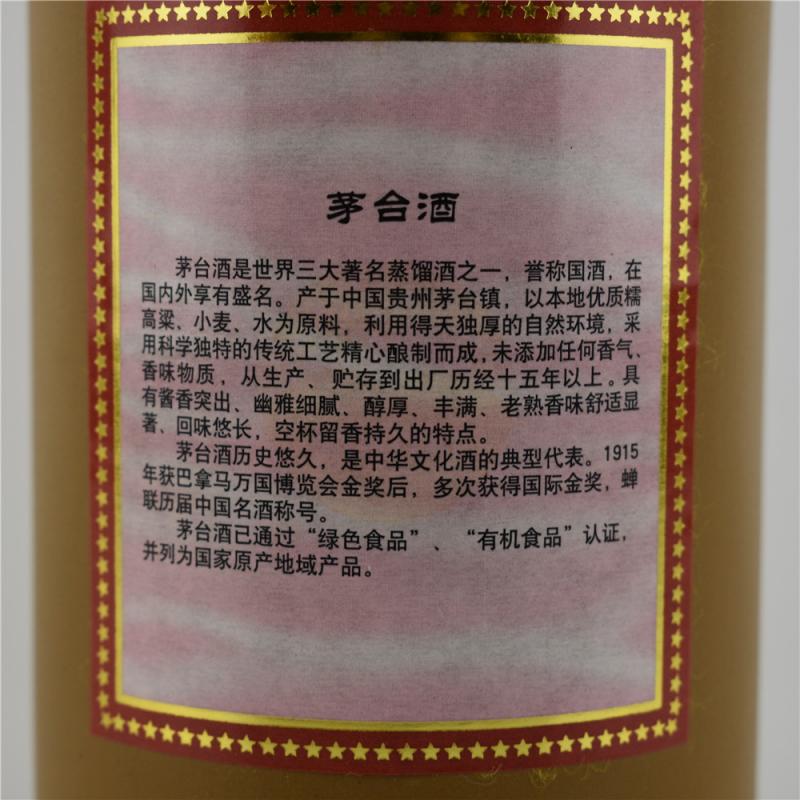 茅台酒
茅台酒是世界三大著名蒸馏酒之一，誉称国酒，在
国内外享有盛名。产于中国贵州茅台镇，以本地优质糯
高粱、小麦、水为原料，利用得天独厚的自然环境，采
用科学独特的传统工艺精心酿制而成，未添加任何香气、
香味物质，从生产、贮存到出厂历经十五年以上。具
有酱香突出、幽雅细腻、醇厚、丰满、老熟香味舒适显
著、回味悠长，空杯留香持久的特点。
茅台酒历史悠久，是中华文化酒的典型代表。1915
年获巴拿马万国博览会金奖后，多次获得国际金奖，蝉
联历届中国名酒称号。
茅台酒已通过“绿色食品”、“有机食品”认证，
并列为国家原产地域产品。